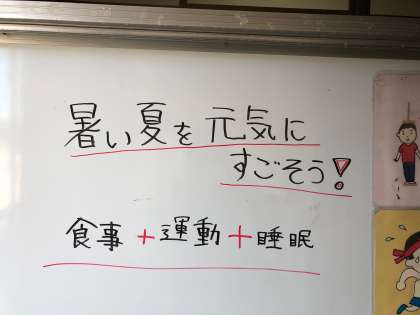 暑い夏を元気に
すごそう!
食事+運動+睡眠